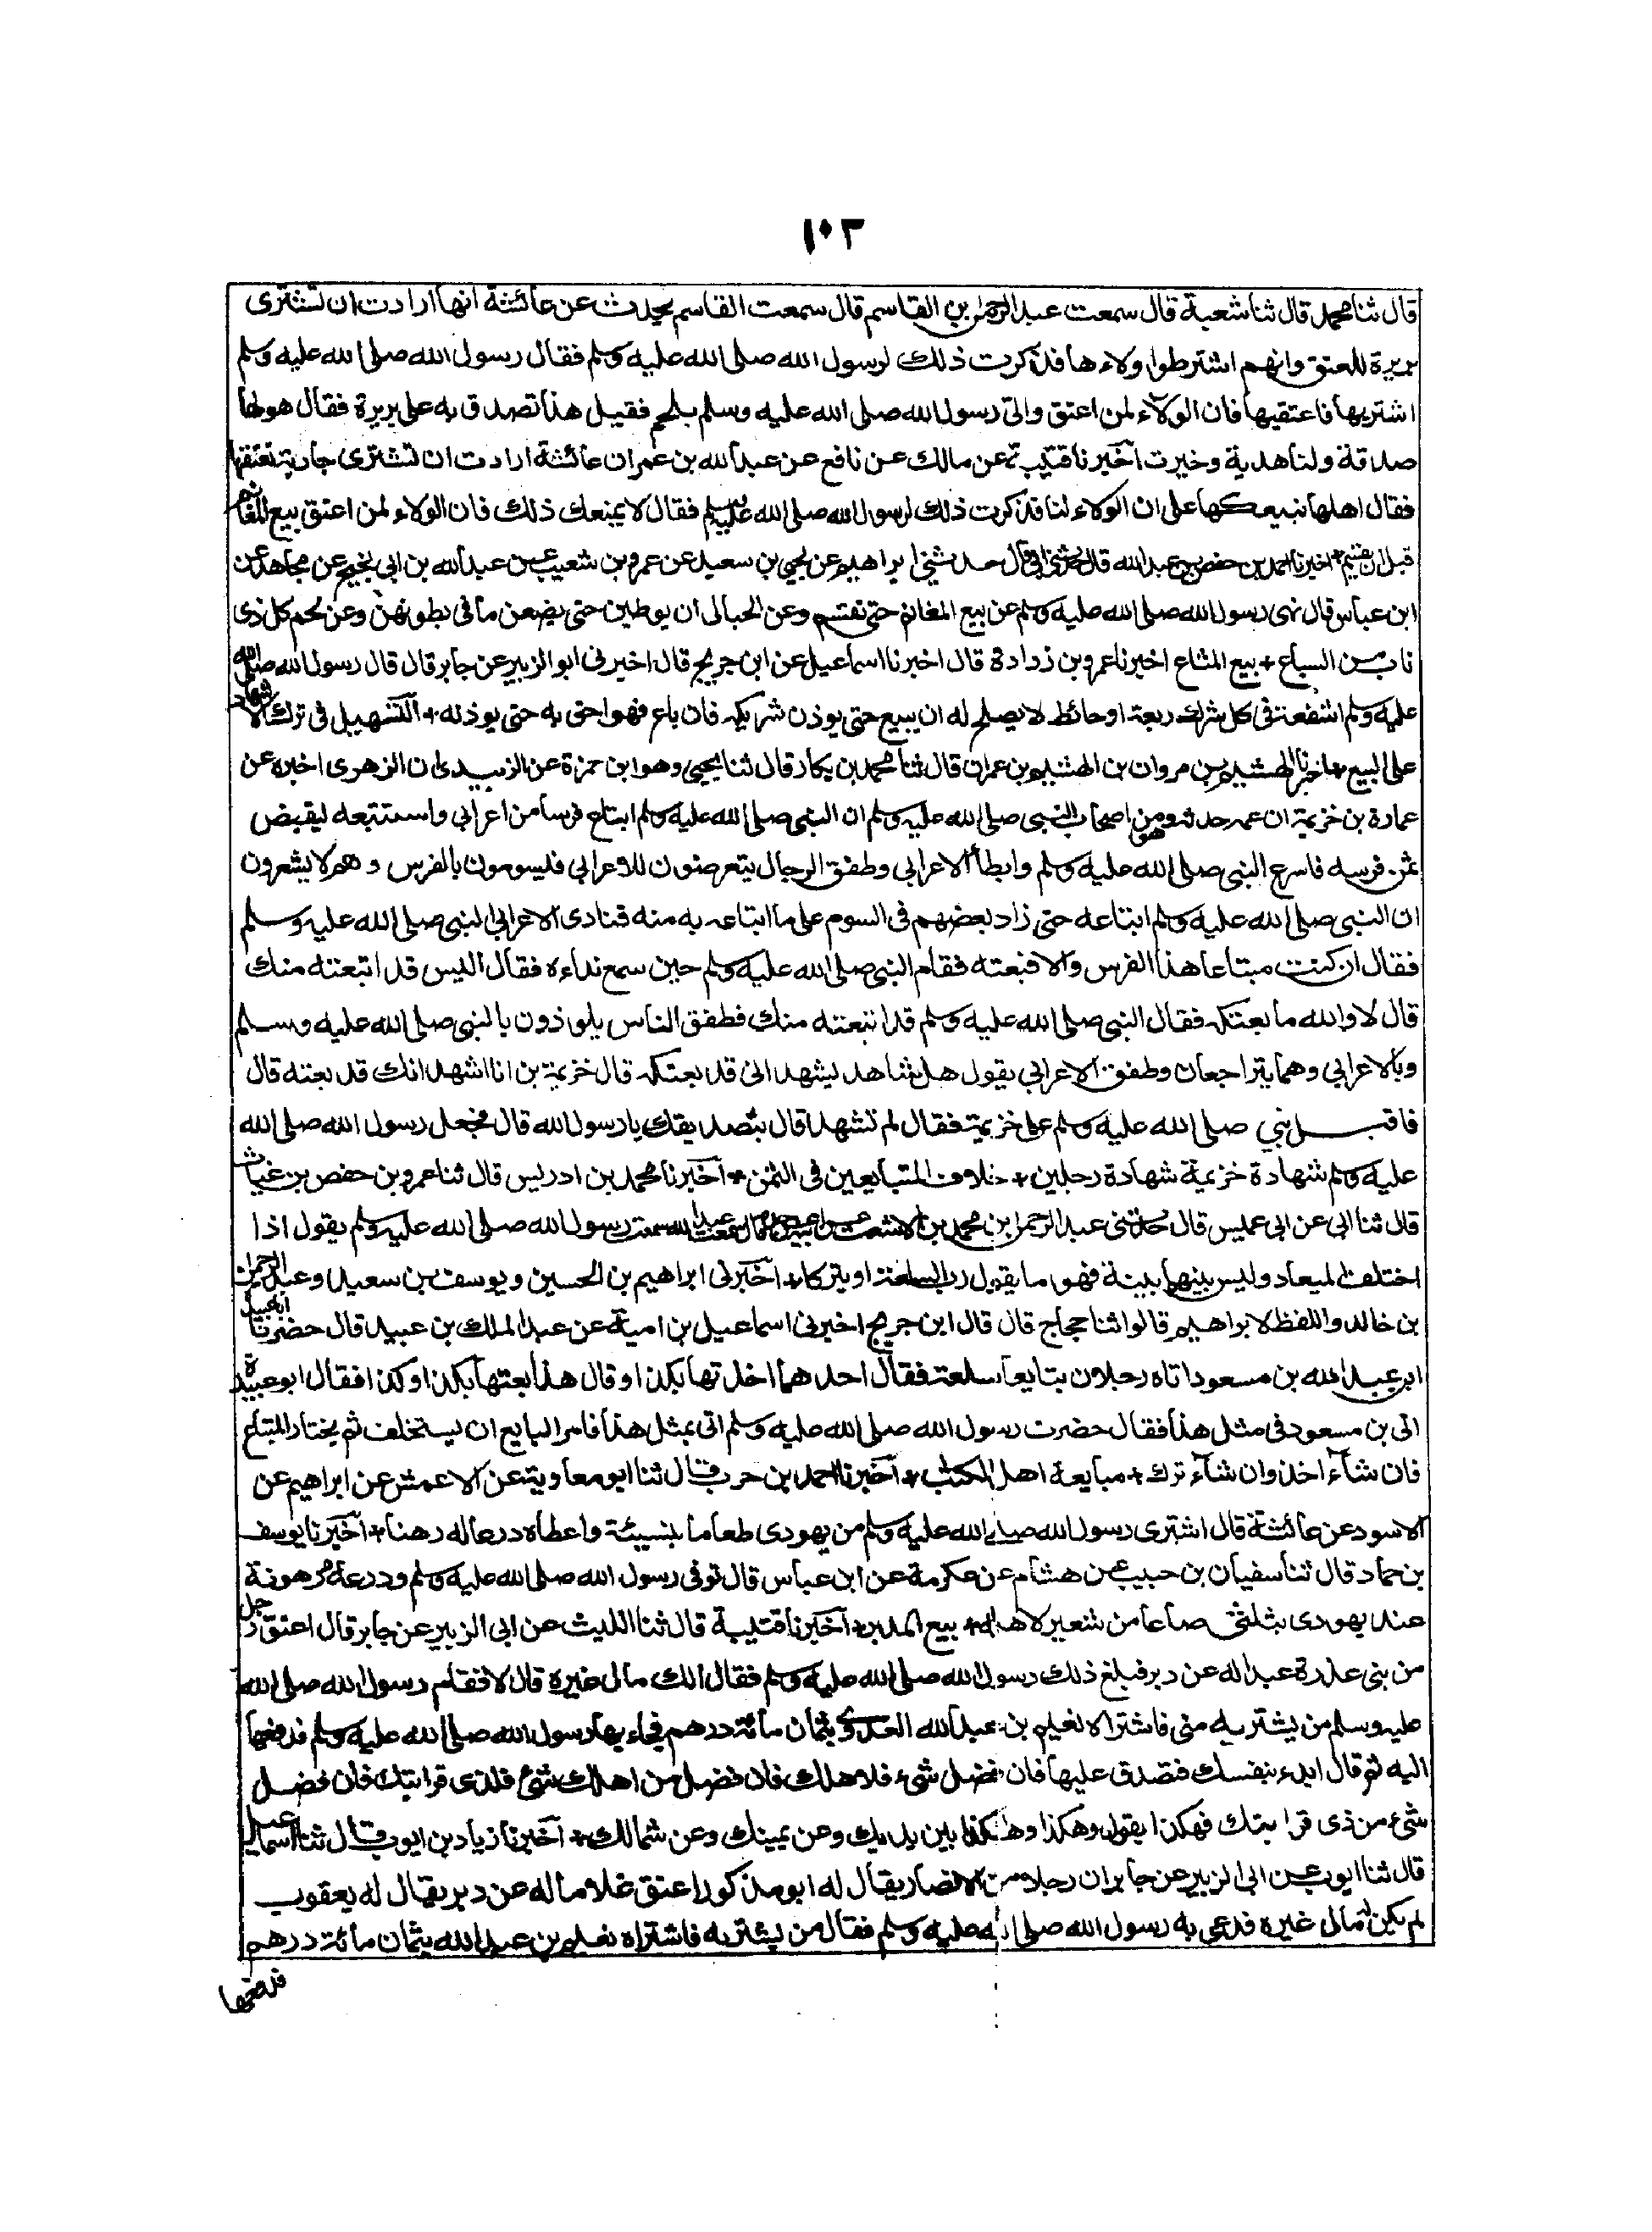 ١٠٣
قال ثنا محمد قال ثنا شعبة قال سمعت عبد الرحمن بن القاسم قال سمعت القاسم يحدث عن عائشة انها ارادت ان تشترى
بريرة للعتق وانهم اشترطوا ولاءها فذكرت ذلك لرسول الله صلى الله عليه وسلم فقال رسول الله صلى الله عليه وسلم
اشتريها فاعتقيها فان الولاء لمن اعتق واتى رسول الله صلى الله عليه وسلم بلحم فقيل هذا تصدق به على بريرة فقال هو لها
صدقة ولنا هدية وخيرت اخبرنا قتيبة عن مالك عن نافع عن عبد الله بن عمر ان عائشة ارادت ان تشترى جارية تعتقها
فقال اهلها نبيعكها على ان الولاء لنا فذكرت ذلك لرسول الله صلى الله عليه وسلم فقال لا يمنعك ذلك فان الولاء لمن اعتق بيع المغانم
قبل ان تقسم + اخبرنا احمد بن حفص بن عبد الله قال حدثنى ابى قال حدثنى ابراهيم عن يحيى بن سعيد عن عمرو بن شعيب عن عبد الله بن ابى نجيح عن مجاهد عن
ابن عباس قال نهى رسول الله صلى الله عليه وسلم عن بيع المغانم حتى تقسم وعن الحبالى ان يوطين حتى يضعن ما فى بطونهن وعن لحم كل ذى
ناب من السباع + بيع المشاع اخبرنا عمرو بن زرارة قال اخبرنا اسماعيل عن ابن جريج قال اخبرنى ابو الزبير عن جابر قال قال رسول الله صلى الله
عليه وسلم الشفعة فى كل شرك ربعة او حائط لا يصلح له ان يبيع حتى يوذن شريكه فان باع فهو احق به حتى يوذنه + التسهيل فى ترك الاشهاد
على البيع + اخبرنا الهيثم بن مروان بن الهيثم بن عمران قال ثنا محمد بن بكار قال ثنا يحيى وهو ابن حمزة عن الزبيدى ان الزهرى اخبره عن
عمارة بن خزيمة ان عمه حدثه وهو من اصحاب النبى صلى الله عليه وسلم ان النبى صلى الله عليه وسلم ابتاع فرسا من اعرابى واستتبعه ليقبض
ثمن فرسه فاسرع النبى صلى الله عليه وسلم وابطأ الاعرابى وطفق الرجال يتعرضون للاعرابى فليسومون بالفرس وهم لا يشعرون
ان النبى صلى الله عليه وسلم ابتاعه حتى زاد بعضهم فى السوم على ما ابتاعه به منه فنادى الاعرابى النبى صلى الله عليه وسلم
فقال ان كنت مبتاعا هذا الفرس والا فبعته فقام النبى صلى الله عليه وسلم حين سمع نداءه فقال اليس قد ابتعته منك
قال لا والله ما بعتكه فقال النبى صلى الله عليه وسلم قد ابتعته منك فطفق الناس يلوذون بالنبى صلى الله عليه وسلم
وبالاعرابى وهما يتراجعان وطفق الاعرابى يقول هل شاهد يشهد انى قد بعتكه قال خزيمة بن انا اشهد انك قد بعته قال
فاقبل نبي صلى الله عليه وسلم على خزيمة فقال لم تشهد قال بتصديقك يا رسول الله قال فجعل رسول الله صلى الله
عليه وسلم شهادة خزيمة شهادة رجلين + خلاف المتبايعين فى الثمن + اخبرنا محمد بن ادريس قال ثنا عمرو بن حفص بن غياث
قال ثنا ابى عن ابى عميس قال حدثنى عبد الرحمن بن محمد بن الاشعث عن ابيه عن جده قال عبد الله سمعت رسول الله صلى الله عليه وسلم يقول اذا
اختلف البيعان وليس بينهما بينة فهو ما يقول رب السلعة او يتركا + اخبرنى ابراهيم بن الحسين ويوسف بن سعيد وعبد الرحمن
بن خالد واللفظ لابراهيم قالوا ثنا حجاج قال قال ابن جريج اخبرنى اسماعيل بن امية عن عبد الملك بن عبيد قال حضرنا ابا عبيدة
بن عبد الله بن مسعود اتاه رجلان تبايعا سلعة فقال احدهما اخذتها بكذا وقال هذا بعتها بكذا وكذا فقال ابو عبيدة
اتى بن مسعود فى مثل هذا فقال حضرت رسول الله صلى الله عليه وسلم اتى بمثل هذا فامر البايع ان يستحلف ثم يختار المبتاع
فان شاء اخذ وان شاء ترك + مبايعة اهل الكتاب + اخبرنا احمد بن حرب قال ثنا ابو معاوية عن الاعمش عن ابراهيم عن
الاسود عن عائشة قال اشترى رسول الله صلى الله عليه وسلم من يهودى طعاما بنسيئة واعطاه درعا له رهنا + اخبرنا يوسف
بن حماد قال ثنا سفيان بن حبيب عن هشام عن عكرمة عن ابن عباس قال توفى رسول الله صلى الله عليه وسلم ودرعه مرهونة
عند يهودى بثلثين صاعا من شعير لاهله + بيع المدبر + اخبرنا قتيبة قال ثنا الليث عن ابى الزبير عن جابر قال اعتق رجل
من بنى عذرة عبدا له عن دبر فبلغ ذلك رسول الله صلى الله عليه وسلم فقال الك مال غيره قال لا فقام رسول الله صلى الله
عليه وسلم من يشتريه منى فاشتراه نعيم بن عبد الله العدوى بثمان مائة درهم فجاء بها رسول الله صلى الله عليه وسلم فدفعها
اليه ثم قال ابدء بنفسك فتصدق عليها فان فضل شىء فلاهلك فان فضل من اهلك شىء فلذى قرابتك فان فضل
شىء من ذى قرابتك فهكذا يقول وهكذا وهكذا بين يديك وعن يمينك وعن شمالك + اخبرنا زياد بن ايوب قال ثنا اسماعيل
قال ثنا ايوب عن ابى الزبير عن جابر ان رجلا من الانصار يقال له ابو مذكور اعتق غلاما له عن دبر يقال له يعقوب
لم يكن له مال غيره فدعى به رسول الله صلى الله عليه وسلم فقال من يشتريه فاشتراه نعيم بن عبد الله بثمان مائة درهم
فدفعها